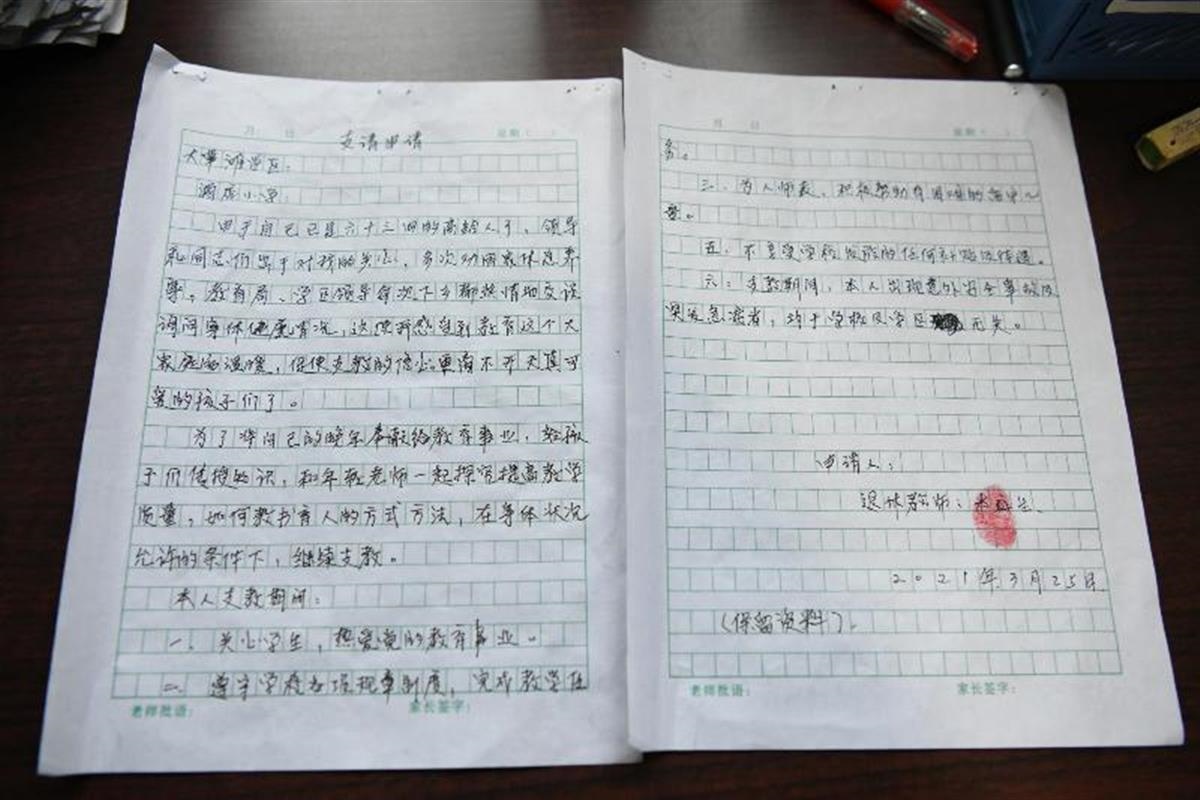 月 日 星期（ ）
支请申请
大草滩学区：
酒店小学：
由于自己已是六十三四的高龄人了，领导
和同志们出于对我的关心，多次劝回家休息养
教育局、学区领导每次下乡都热情地交谈
询问身体健康情况，这使我感受到教育这个大
家庭的温暖，促使支教的信心更离不开天真可
爱的孩子们了。
为了将自己的晚年奉献给教育事业，给孩
子们传授知识，和年轻老师一起探究提高教学
质量，如何教书育人的方式方法，在身体状况
允许的条件下，继续支教。
本人支教期间：
一、关心学生，热爱党的教育事业。
二、遵守学校各项规章制度，完成教学任
老师批语： 家长签字：
月 日 星期（ ）
务。
三、为人师表，积极帮助有困难的
五、不享受学校发放的任何补贴及待遇。
六、支教期间，本人出现意外安全事故及
突发急病者，均于学校及学区无关。
申请人：
退休教师：
2021年3月25日
（保留资料）。
老师批语： 家长签字：